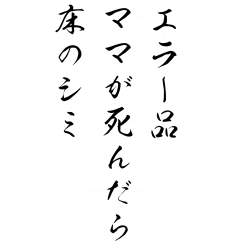 エラー品
ママが死んだら
床のシミ